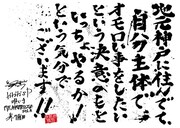 地元神戸に住んで、
自分主体で、
オモロい事をしたい
という決意のもと
いっちょやるか!!
という気分で
ございます!!